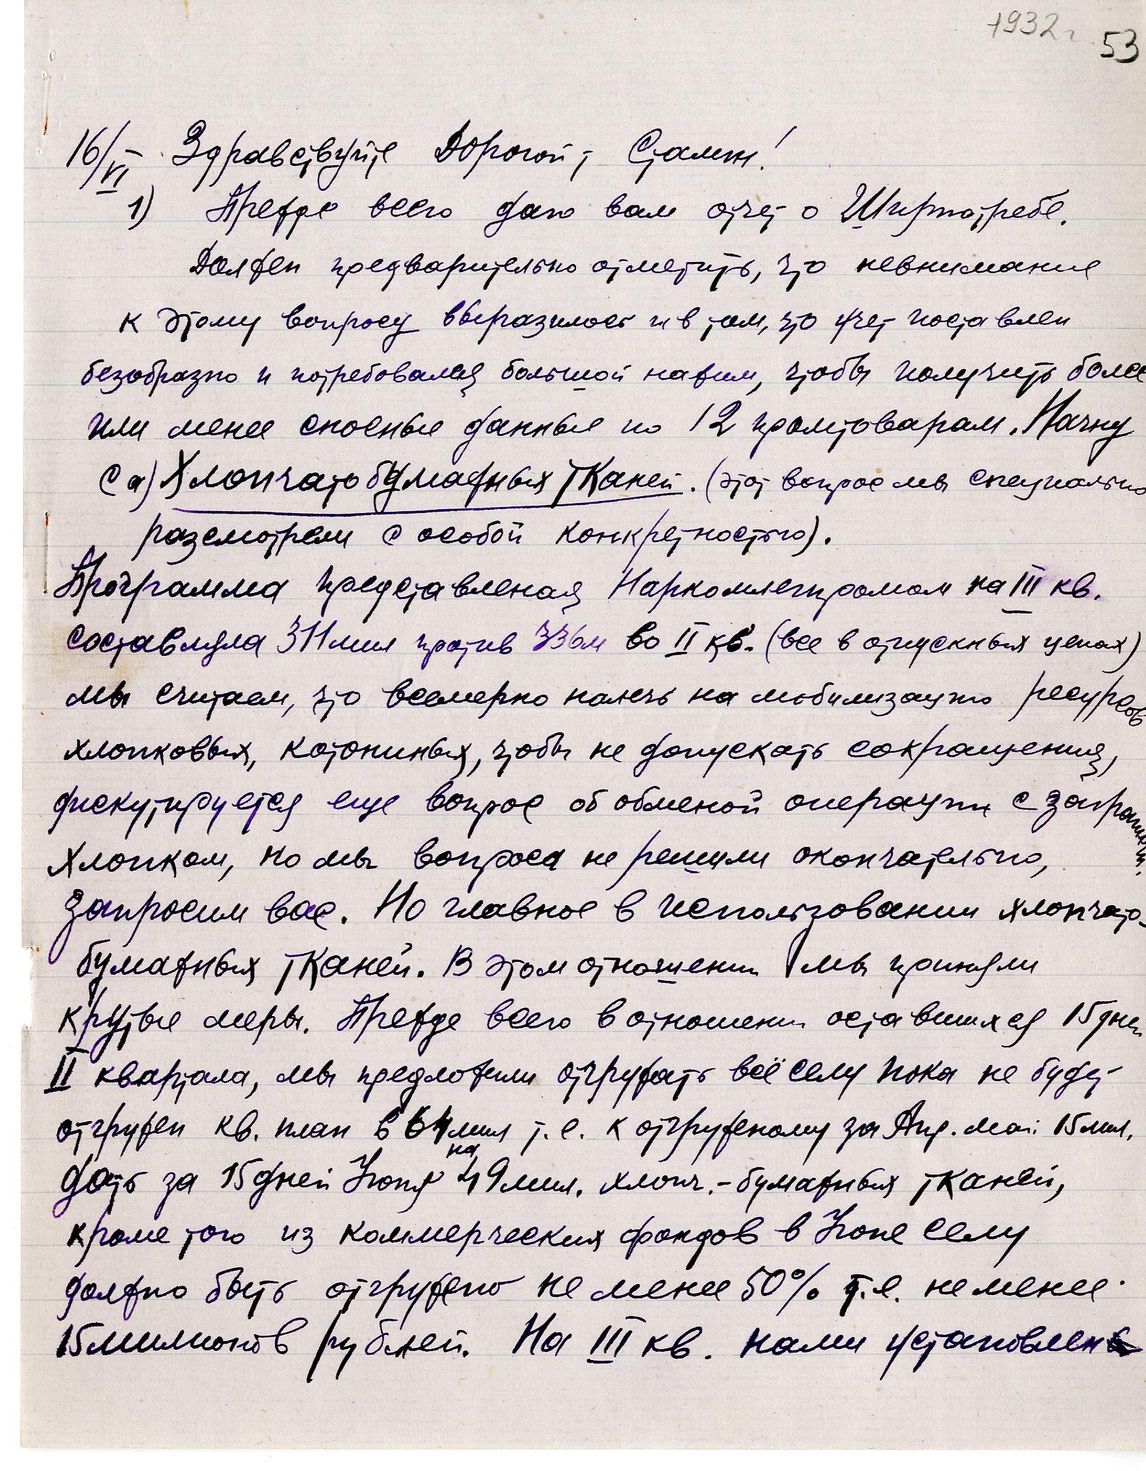 1932 г 53
16/VI Здравствуйте Дорогой т Сталин!
1) Прежде всего даю вам отчет о Ширпотребе.
Должен предварительно отметить, что невнимание
к этому вопросу выразилось и в том, что учет поставлен
безобразно и потребовался большой нажим, чтобы получить более
или менее сносные данные по 12 промтоварам. Начну
с а) Хлопчатобумажных тканей. (этот вопрос мы специально
разсмотрели с особой конкретностью).
Программа представленая Наркомлегпромом на III кв.
составляла 311 мил против 336 м во II кв. (все в отпускных ценах)
мы считаем, что всемерно налечь на мобилизацию ресурсов
хлопковых, котонинных, чтобы не допускать сокращения,
дискутируется еще вопрос об обменой операции с заграничн.
хлопком, но мы вопроса не решили окончательно,
запросим вас. Но главное в использовании хлопчато-
бумажных тканей. В этом отношении мы приняли
крутые меры. Прежде всего в отношении оставшихся 15 дней
II квартала, мы предложили отгружать всё селу пока не будет
отгружен кв. план в 64 мил т.е. к отгруженому за Апр. май 15 мил.
дать за 15 дней Июня на 49 мил. хлопч.-бумажных тканей,
кроме того из коммерческих фондов в Июне селу
должно быть отгружено не менее 50% т.е. не менее
15 миллионов рублей. На III кв. нами установлен